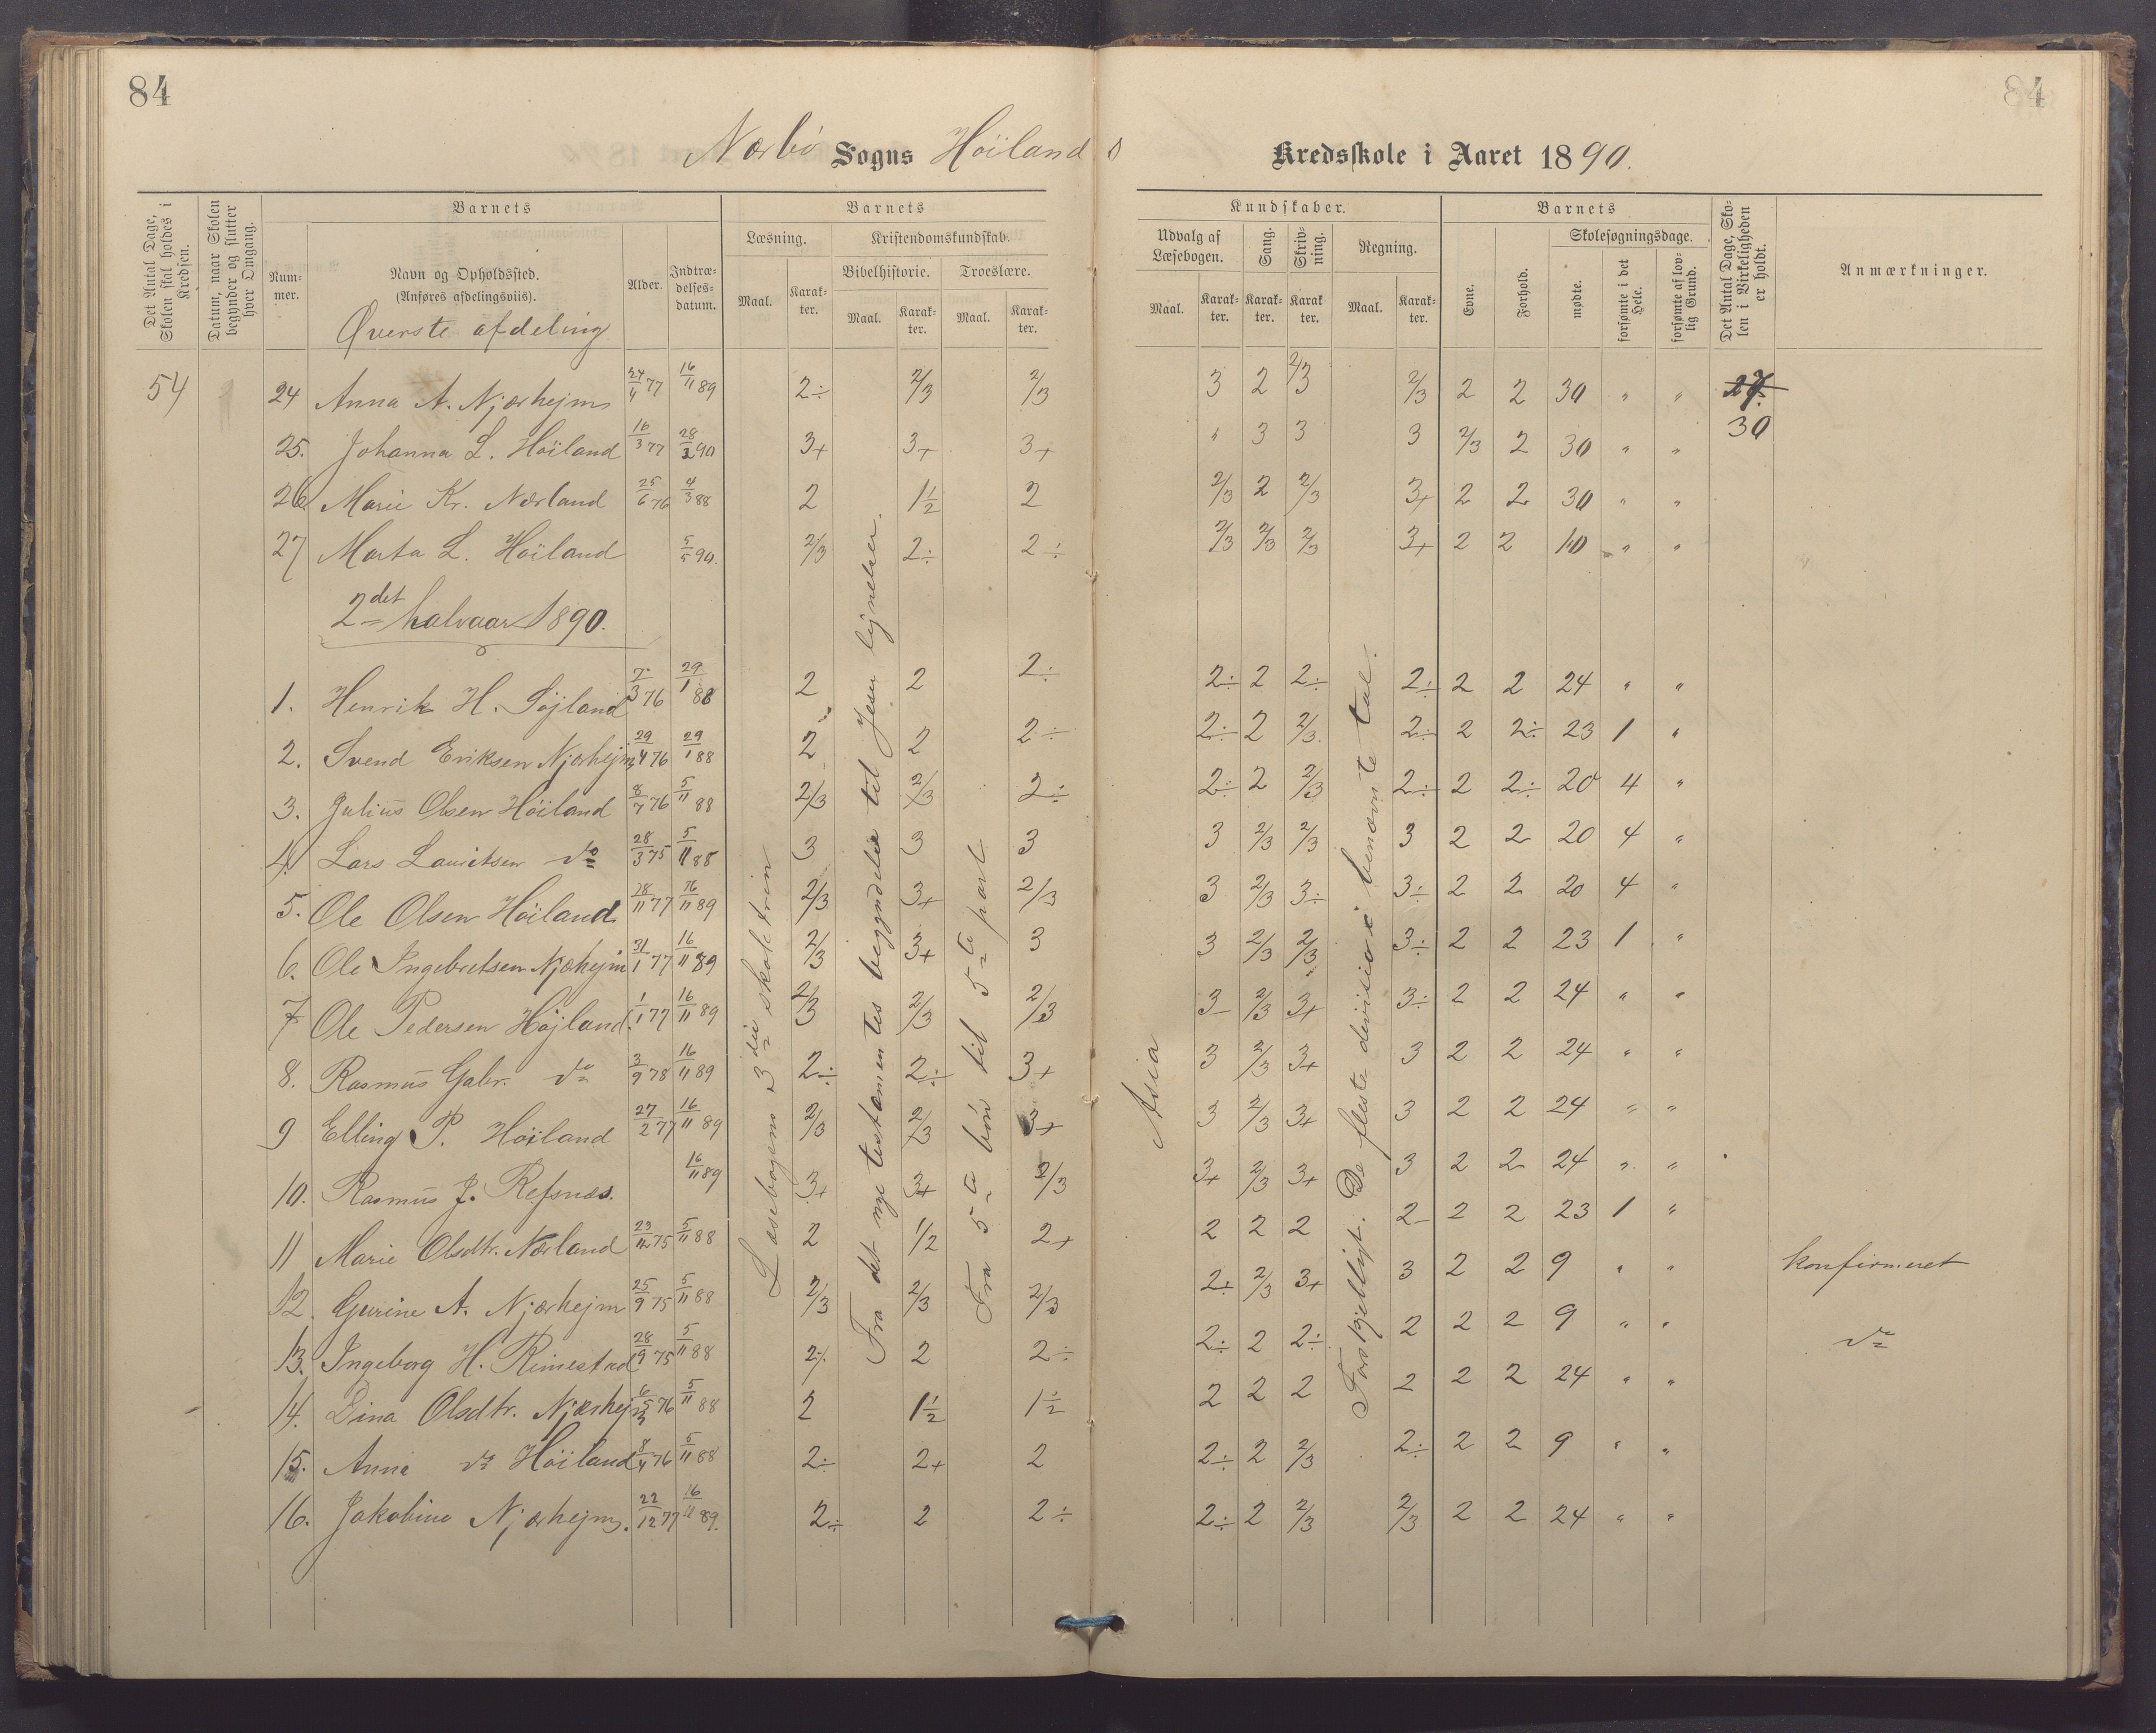 84
84
Nærbö Sogns Höilands Kredsskole i Aaret 1890.
Det Antal Dage, Skolen skal holdes i Kredsen.
Datum, naar Skolen begynder og slutter hver Omgang.
Barnets
Barnets
Kundskaber.
Barnets
Det Antal Dage, Skolen i Virkeligheden er holdt.
Anmærkninger.
Nummer.
Navn og Opholdssted. (Anføres afdelingsviis).
Alder.
Indtrædelsesdatum.
Læsning.
Kristendomskundskab.
Bibelhistorie.
Troeslære.
Maal. Karakter. Maal. Karakter. Maal. Karakter.
Udvalg af Læsebogen.
Sang.
Skrivning.
Regning.
Maal. Karakter. Karakter. Karakter. Maal. Karakter.
Evne.
Forhold.
Skolesøgningsdage.
mødte.
forsømte i det Hele.
forsømte af lovlig Grund.
Øverste afdeling
54 24 Anna A. Njærhejm 24/4 77 16/11 89 2÷ 2/3 2/3 3 2 2/3 2/3 2 2 30 " " 27
30
25. Johanna L. Höiland 16/3 77 28/2 90 3+ 3+ 3+ " 3 3 3 2/3 2 30 " "
26 Marie Kr. Nærland 25/6 76 4/3 88 2 1½ 2 2/3 2 2/3 3+ 2 2 30 " "
27 Marta L. Höiland 5/5 90. 2/3 2÷ 2÷ 2/3 2/3 2/3 3+ 2 2 10 " "
2det halvaar 1890.
1. Henrik H. Höjland 7/3 76 29/1 88 2 2 2÷ 2÷ 2 2÷ 2÷ 2 2 24 " "
2. Svend Eriksen Njærhejm 29/4 76 29/1 88 2 2 2÷ 2÷ 2 2/3 2÷ 2 2÷ 23 1 "
3. Julius Olsen Höiland 8/7 76 5/11 88 2/3 2/3 2÷ 2÷ 2 2/3 2÷ 2 2÷ 20 4 "
4. Lars Lauritsen do 28/3 75 5/11 88 3 3 3 3 2/3 2/3 3 2 2 20 4 "
5. Ole Olsen Höiland 28/11 77 16/11 89 2/3 3+ 2/3 3 2/3 3÷ 3÷ 2 2 20 4 "
6. Ole Ingebretsen Njæhejm 31/1 77 16/11 89 2/3 3+ 3 3 2/3 2/3 3÷ 2 2 23 1 "
7 Ole Pedersen Höjland 1/1 77 16/11 89 2/3 2/3 2/3 3 2/3 3+ 3÷ 2 2 24 " "
8. Rasmus Gabr. do 3/9 78 16/11 89 2÷ 2÷ 3+ 3 2/3 3+ 3 2 2 24 " "
9 Elling P. Höiland 27/2 77 16/11 89 2/3 2/3 3+ 3 2/3 3+ 3 2 2 24 " "
10. Rasmus J. Refsnes. 16/11 89 3+ 3+ 2/3 3+ 2/3 3+ 3 2 2 24 " "
11 Marie Olsdtr. Nærland 23/12 75 5/11 88 2 1/2 2+ 2 2 2 2 2 2 23 1 "
12. Gurine A. Njærhejm 25/9 75 5/11 88 2/3 2/3 2/3 2÷ 2/3 3+ 3 2 2 9 " " konfirmeret
13. Ingeborg H. Rimestad 28/9 75 5/11 88 2÷ 2 2÷ 2÷ 2 2÷ 2 2 2 9 " " do
14. Dina Olsdtr. Njærhejm 76 5/11 88 2 1½ 1½ 2 2 2 2 2 2 24 " "
15. Anna do Höiland 8/4 76 5/11 88 2÷ 2+ 2 2÷ 2 2/3 2÷ 2 2 9 " "
16. Jakobine Njærhejm. 22/12 77 16/11 89. 2÷ 2 2÷ 2÷ 2 2/3 2/3 2 2 24 " "
Læsebogens 3die skoletrin
Fra det nye testamentes begyndelse til Jesu lignelser.
Fra 5te bön til 5te part
Asia
Forskjelligt. De fleste division i benævnte tal.